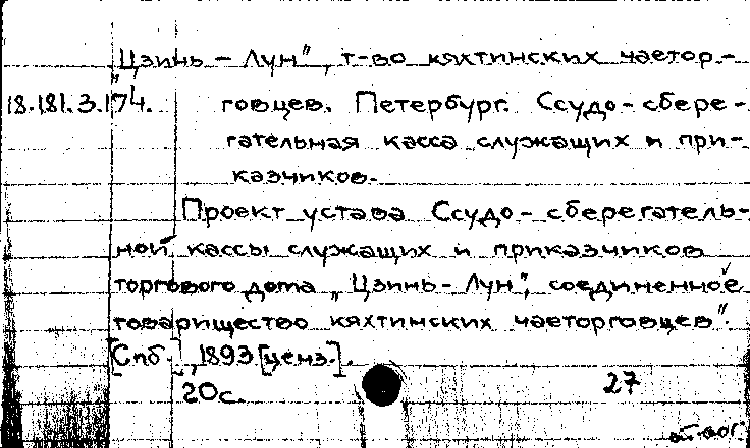 „Цзинь – Лун", т-во кяхтинских чаетор-
18.181.3.174. говцев. Петербург. Ссудо-сбере-
гательная касса служащих и при-
казчиков.
Проект устава Ссудо-сберегатель-
ной кассы служащих и приказчиков
торгового дома „Цзинь-Лун", соединенное
товарищество кяхтинских чаеторговцев".
[Спб.], 1893 [ценз.].
20с. 27